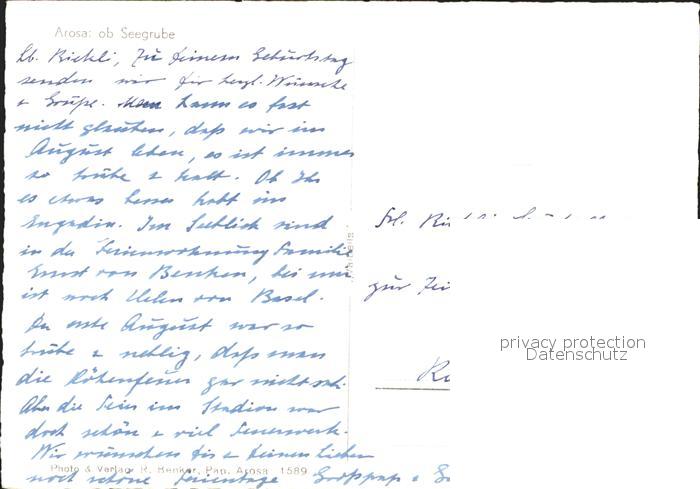 Arosa: ob Seegrube
Lb. Rickli, Zu Deinem Geburtstag
senden wir Dir herzl. Wünsche
& Grüsse. Man kann es fast
nicht glauben, dass wir im
August leben, es ist immer
so trübe & kalt. Ob Ihr
es etwas besser habt im
Engadin. Im Seeblick sind
in der Ferienwohnung Familie
Ernst von Benken, bei uns
ist noch Helen von Basel.
Der erste August war so
trübe & neblig, dass man
die Höhenfeuer gar nicht sah.
Aber die Feier im Stadion war
doch schön & viel Feuerwerk.
Wir wünschen Dir & Deinen Lieben
noch schöne Ferientage Grosspap &
Photo & Verlag R. Benker, Pap. Arosa 1589
Frl.
zur
privacy protection
Datenschutz